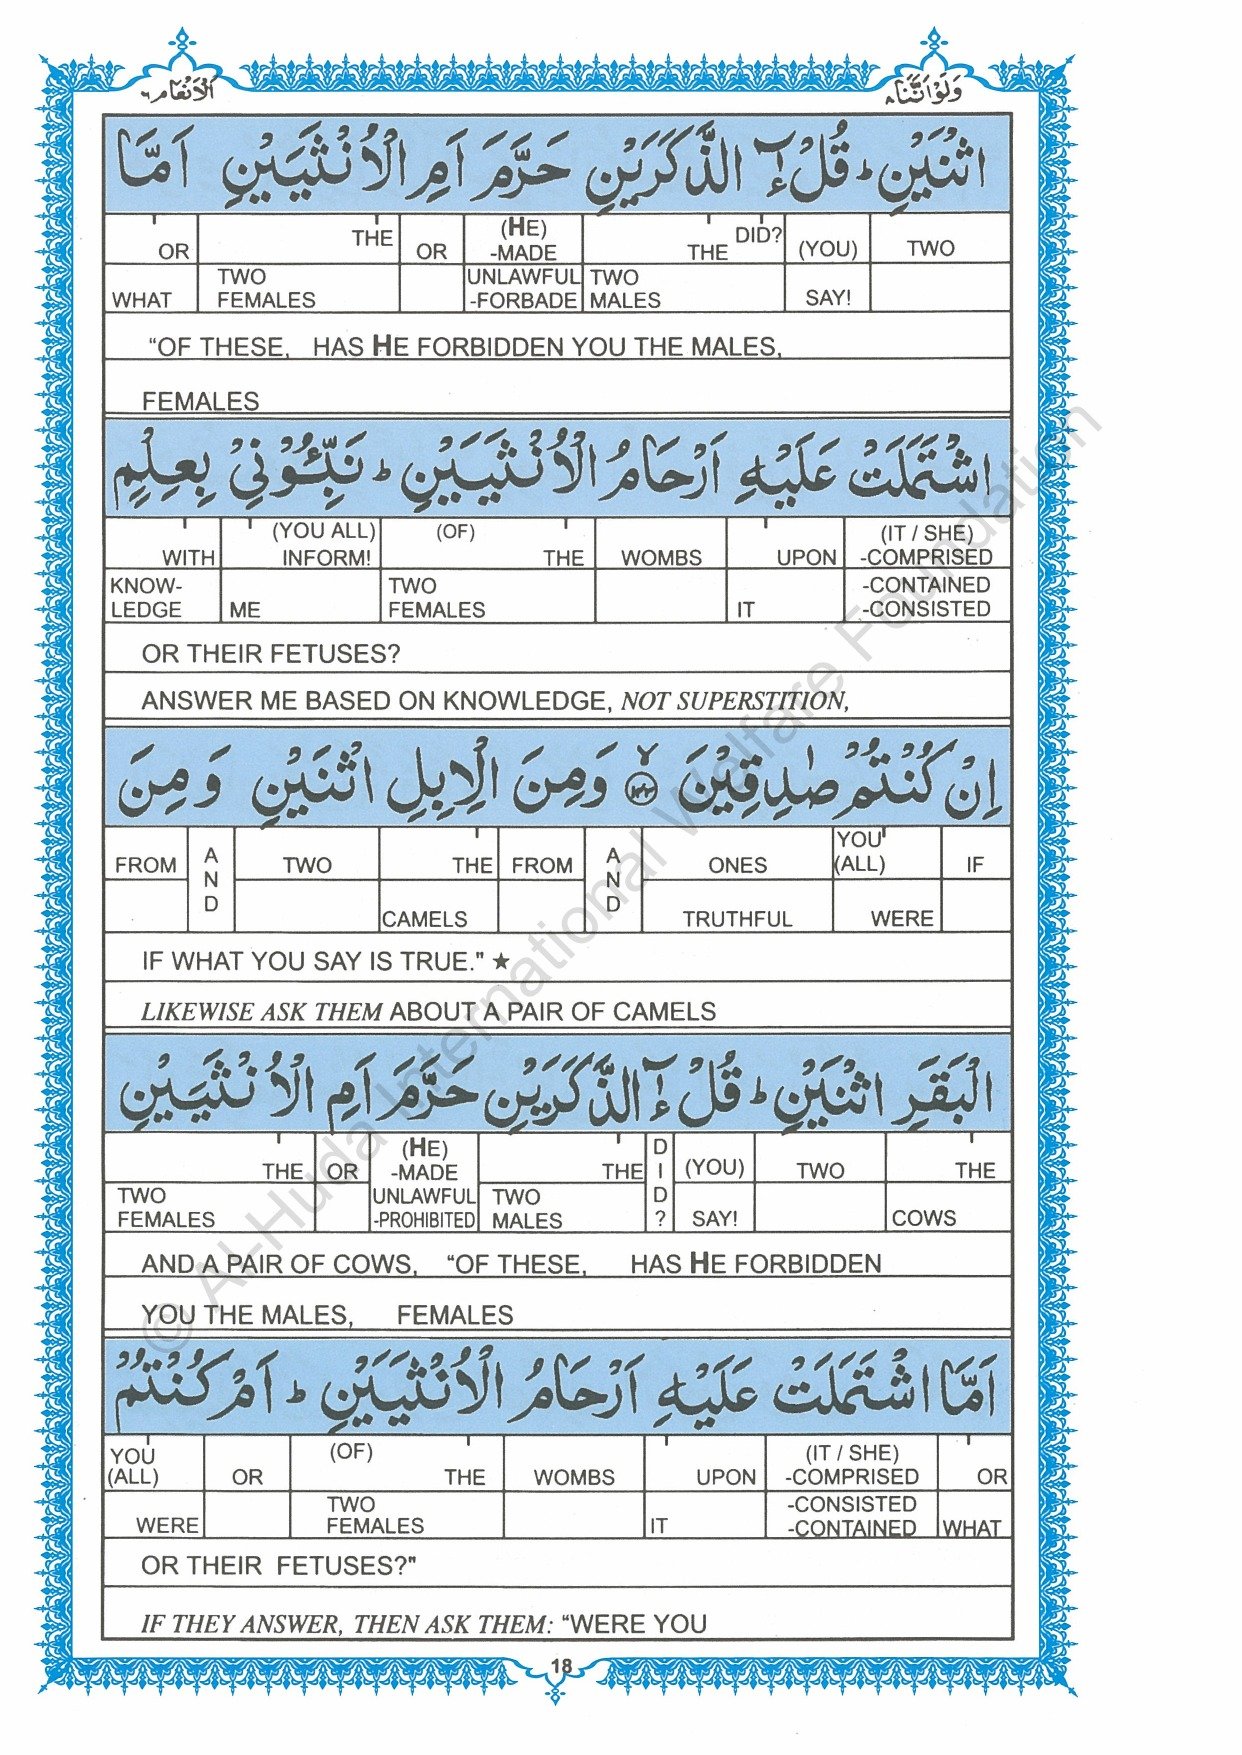 الْاَنْعَام ٦ وَلَوْ اَنَّنَا ٨
اثْنَيْنِ ؕ قُلْ ءٰٓ الذَّكَرَيْنِ حَرَّمَ اَمِ الْاُنْثَيَيْنِ اَمَّا
OR THE OR (HE) -MADE THE DID? (YOU) TWO
WHAT TWO FEMALES UNLAWFUL -FORBADE TWO MALES SAY!
“OF THESE, HAS HE FORBIDDEN YOU THE MALES,
FEMALES
اشْتَمَلَتْ عَلَيْهِ اَرْحَامُ الْاُنْثَيَيْنِ ؕ نَبِّـُٔوْنِيْ بِعِلْمٍ
WITH (YOU ALL) INFORM! (OF) THE WOMBS UPON (IT / SHE) -COMPRISED
KNOW-LEDGE ME TWO FEMALES IT -CONTAINED -CONSISTED
OR THEIR FETUSES?
ANSWER ME BASED ON KNOWLEDGE, NOT SUPERSTITION,
اِنْ كُنْتُمْ صٰدِقِيْنَ ۙ‏﴿۱۴۳﴾ وَمِنَ الْاِبِلِ اثْنَيْنِ وَمِنَ
FROM AND TWO THE FROM AND ONES YOU (ALL) IF
CAMELS TRUTHFUL WERE
IF WHAT YOU SAY IS TRUE." ★
LIKEWISE ASK THEM ABOUT A PAIR OF CAMELS
الْبَقَرِ اثْنَيْنِ ؕ قُلْ ءٰٓ الذَّكَرَيْنِ حَرَّمَ اَمِ الْاُنْثَيَيْنِ
THE OR (HE) -MADE THE DID? (YOU) TWO THE
TWO FEMALES UNLAWFUL -PROHIBITED TWO MALES SAY! COWS
AND A PAIR OF COWS, “OF THESE, HAS HE FORBIDDEN
YOU THE MALES, FEMALES
اَمَّا اشْتَمَلَتْ عَلَيْهِ اَرْحَامُ الْاُنْثَيَيْنِ ؕ اَمْ كُنْتُمْ
YOU (ALL) OR (OF) THE WOMBS UPON (IT / SHE) -COMPRISED OR
WERE TWO FEMALES IT -CONSISTED -CONTAINED WHAT
OR THEIR FETUSES?"
IF THEY ANSWER, THEN ASK THEM: “WERE YOU
18
© Al-Huda International Welfare Foundation